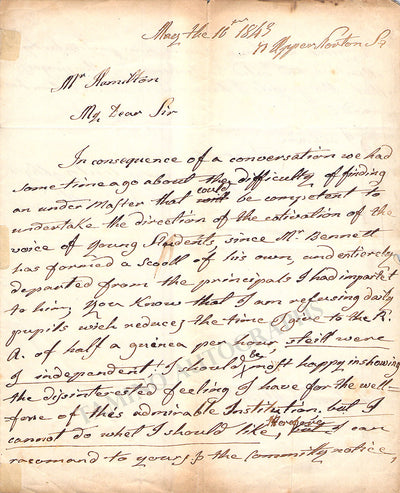 May the 16th 1843
71 Upper Norton St
Mr Hamilton
My Dear Sir
In consequence of a conversation we had
some time ago about the difficulty of finding
an under Master that could be competent to
undertake the direction of the cotivation of the
voice of young Students since Mr Bennett
has formed a scooll of his own and entierely
departed from the principals I had impartet
to him; You Know that I am refusing daily
pupils wich reduces the time I give to the R.
A. of half a guinea per hour still were
I independent! I should be most happy in showing
the disinterested feeling I have for the well-
fare of this admirable Institution, but I
cannot do what I should like, therefore I can
racomand to yours & the Comunity notice,